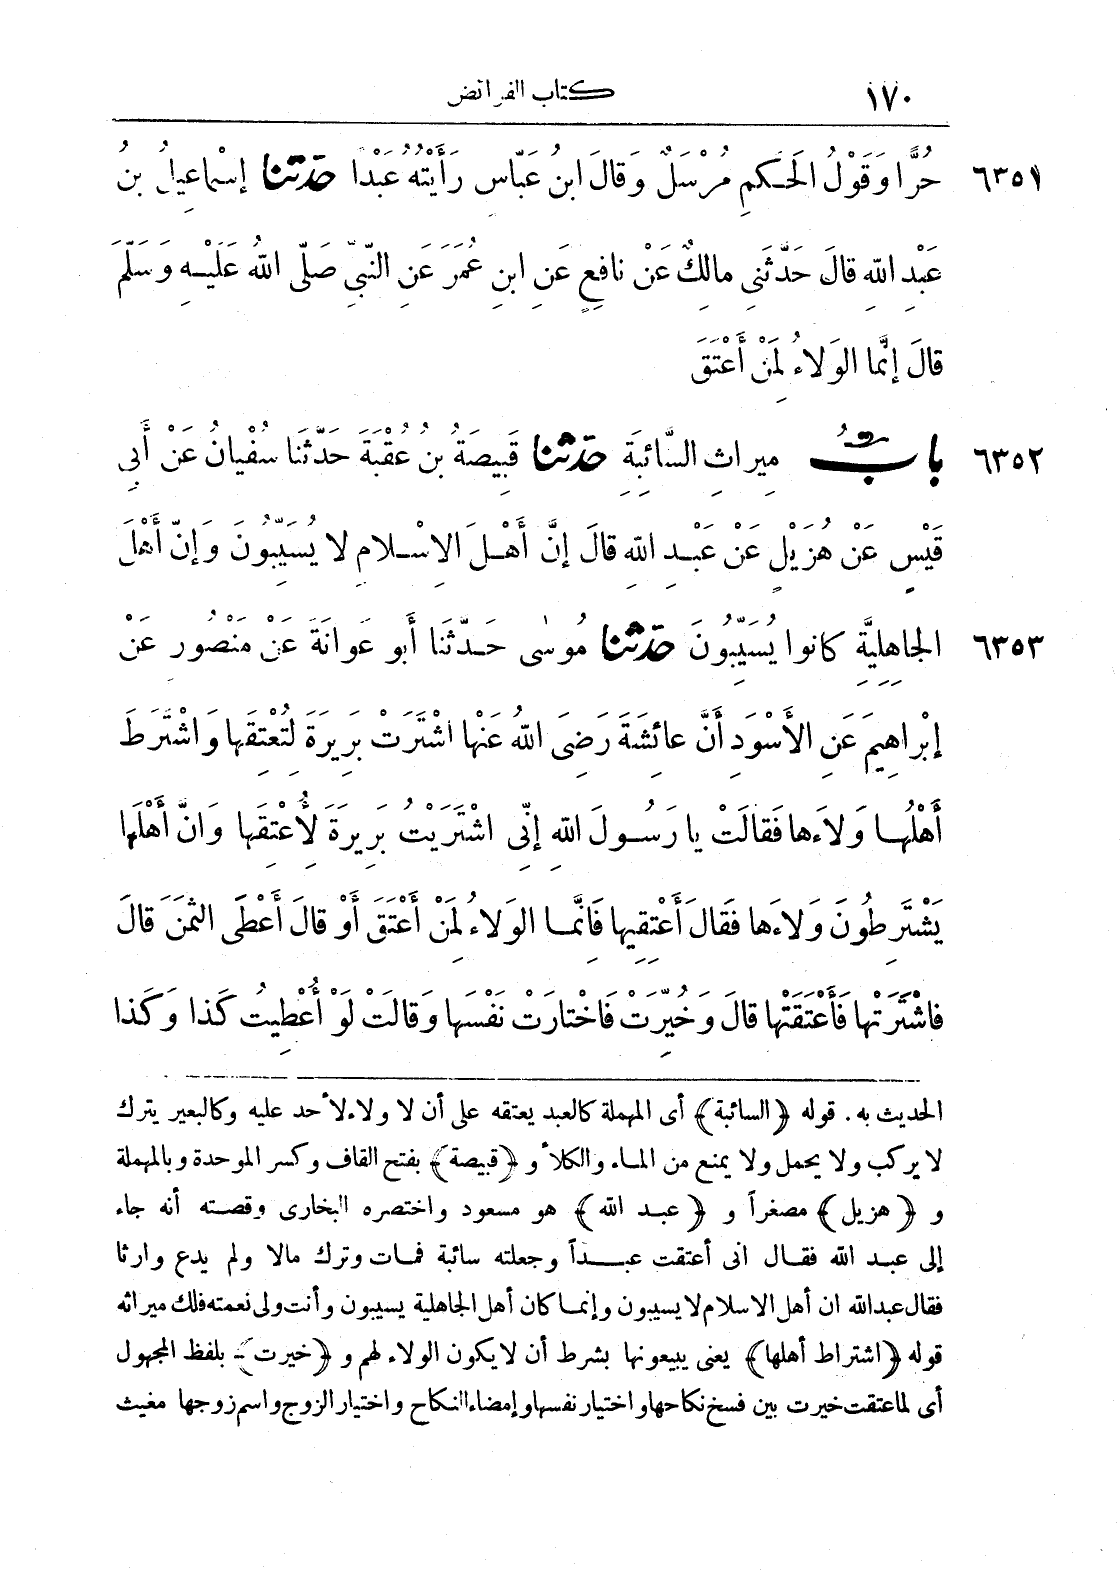 ١٧٠ كتاب الفرائض
٦٣٥١ حُرًّا وَقَوْلُ الْحَكَمِ مُرْسَلٌ وَقَالَ ابنُ عَبَّاسٍ رَأَيْتُهُ عَبْدًا حَدَّثَنَا إِسْمَاعِيلُ بنُ
عَبْدِ اللهِ قالَ حَدَّثَنِي مالِكٌ عَنْ نافِعٍ عَنِ ابنِ عُمَرَ عَنِ النَّبِيِّ صَلَّى اللهُ عَلَيْهِ وَسَلَّمَ
قالَ إِنَّما الوَلَاءُ لِمَنْ أَعْتَقَ
٦٣٥٢ بابُ مِيراثِ السَّائِبَةِ حَدَّثَنَا قَبِيصَةُ بنُ عُقْبَةَ حَدَّثَنَا سُفْيانُ عَنْ أَبِي
قَيْسٍ عَنْ هُزَيْلٍ عَنْ عَبْدِ اللهِ قالَ إِنَّ أَهْلَ الإِسْلامِ لا يُسَيِّبُونَ وَإِنَّ أَهْلَ
٦٣٥٣ الجاهِلِيَّةِ كانوا يُسَيِّبُونَ حَدَّثَنَا مُوسَى حَدَّثَنَا أبو عَوانَةَ عَنْ مَنْصُورٍ عَنْ
إِبْراهِيمَ عَنِ الأَسْوَدِ أَنَّ عائِشَةَ رَضِىَ اللهُ عَنْها اشْتَرَتْ بَرِيرَةَ لِتُعْتِقَها وَاشْتَرَطَ
أَهْلُها وَلَاءَها فَقالَتْ يا رَسُولَ اللهِ إِنِّي اشْتَرَيْتُ بَرِيرَةَ لِأُعْتِقَها وَإِنَّ أَهْلَها
يَشْتَرِطُونَ وَلاءَها فَقَالَ أَعْتِقِيها فَإِنَّمَا الوَلاءُ لِمَنْ أَعْتَقَ أَوْ قالَ أَعْطَى الثَّمَنَ قالَ
فاشْتَرَتْها فَأَعْتَقَتْها قالَ وَخُيِّرَتْ فَاخْتارَتْ نَفْسَها وَقالَتْ لَوْ أُعْطِيتُ كَذا وَكَذا
الحديث به. قوله ﴿السائبة﴾ أى المهملة كالعبد يعتقه على أن لا ولاء لأحد عليه وكالبعير يترك
لا يركب ولا يحمل ولا يمنع من الماء والكلأ و﴿قبيصة﴾ بفتح القاف وكسر الموحدة وبالمهملة
و ﴿هزيل﴾ مصغراً و ﴿عبد الله﴾ هو مسعود واختصره البخارى وقصته أنه جاء
إلى عبد الله فقال انى أعتقت عبداً وجعلته سائبة فمات وترك مالا ولم يدع وارثا
فقال عبدالله ان أهل الاسلام لا يسيبون وإنما كان أهل الجاهلية يسيبون وأنت ولى نعمته فلك ميراثه
قوله ﴿اشتراط أهلها﴾ يعنى يبيعونها بشرط أن لا يكون الولاء لهم و ﴿خيرت﴾ بلفظ المجهول
أى لما عتقت خيرت بين فسخ نكاحها واختيار نفسها وإمضاء النكاح واختيار الزوج واسم زوجها مغيث